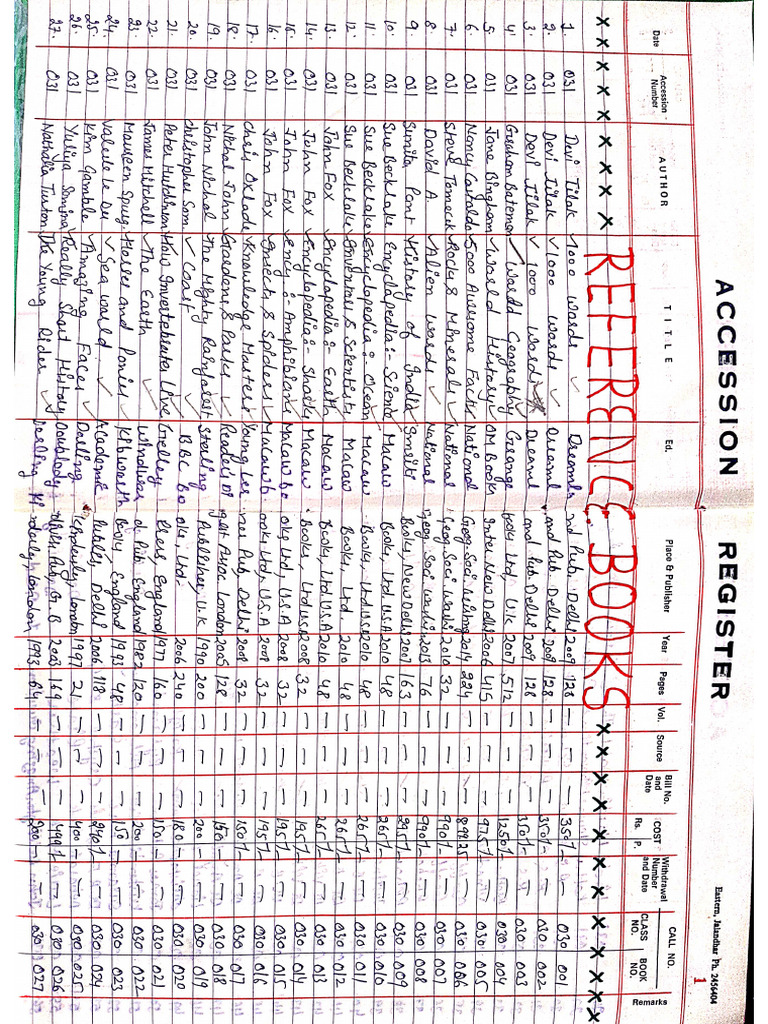 ACCESSION REGISTER
Eastern, Jalandhar Ph. 2456404
1
Date Accession Number AUTHOR TITLE Ed. Place & Publisher Year Pages Vol. Source Bill No. and Date COST Rs. P. Withdrawal Number and Date CALL NO. CLASS NO. BOOK NO. Remarks
x x x x x x x REFERENCE BOOKS x x x x x x x x x x x x
1. 031 Devi Tilak 1000 Words ✓ Dreamland Pub. Delhi 2009 128 — — — 355/- — 030 001
2. 031 Devi Tilak ✓ 1000 Words ✓ Dreamland Pub. Delhi 2009 128 — — — 350/- — 030 002
3. 031 Devi Tilak ✓ 1000 Words Dreamland Pub. Delhi 2009 128 — — — 350/- — 030 003
4. 031 Graham Bateman ✓ World Geography ✓ Grange Books Ltd, U.K 2007 512 — — — 1250/- — 030 004
5. 031 Jane Bingham ✓ World History ✓ OM Books Inter. New Delhi 2006 416 — — — 975/- — 030 005
6. 031 Nancy Castaldo 5000 Awesome Facts National Geog. Soci 2014 224 — — — 899.25 — 030 006
7. 031 Steve Tomecek Rocks & Minerals ✓ National Geog. Soci 2010 32 — — — 990/- — 030 007
8. 031 David A. ✓ Alien Words ✓ National Geog. Soci 2013 76 — — — 990/- — 030 008
9. 031 Sumita Pant History of India Books, New Delhi 2007 163 — — — 295/- — 030 009
10. 031 Sue Becklake Encyclopedia:- Science Macaw Books, Ltd U.S.A 2010 48 — — — 265/- — 030 010
11. 031 Sue Becklake Encyclopedia:- Ocean Macaw Books, Ltd U.S.A 2010 48 — — — 265/- — 030 011
12. 031 Sue Becklake Inventors & Scientists Macaw Books, Ltd. 2010 48 — — — 265/- — 030 012
13. 031 John Fox Encyclopedia:- Earth Macaw Books, Ltd U.S.A 2010 48 — — — 265/- — 030 013
14. 031 John Fox Encyclopedia:- Sharks Macaw Books, Ltd U.S.A 2008 32 — — — 195/- — 030 014
15. 031 John Fox Ency:- Amphibians Macaw Books Ltd, U.S.A 2008 32 — — — 195/- — 030 015
16. 031 John Fox Insects & Spiders ✓ Macaw Books Ltd, U.S.A 2008 32 — — — 195/- — 030 016
17. 031 Chris Oxlade Knowledge Masters Young Learner Pub, Delhi 2008 32 — — — 150/- — 030 017
18. 031 Nichol John Gardens & Parks ✓ Readers Digest Assoc London 2005 128 — — — 150 — 030 018
19. 031 John Nichol The Mighty Rainforest Sterling Publishers, U.K 1990 200 — — — 200 — 030 019
20. 031 Christopher Som ✓ Coast ✓ BBC Books, Ltd. 2006 240 — — — 180 — 030 020
21. 031 Peter Hutchinson How Invertebrates Live England 1977 160 — — — 150 — 030 021
22. 031 James Mitchell ✓ The Earth ✓ Windward Pub. England 1982 120 — — — 200 — 030 022
23. 031 Maureen Spurg. Horses and Ponies ✓ Kibworth Books, England 1993 48 — — — 150 — 030 023
24. 031 Valerie le Du ✓ Sea World ✓ Academic Publs, Delhi 2006 118 — — — 240/- — 030 024
25. 031 Kim Gamble ✓ Amazing Faces ✓ Darling Kindersley, London 1997 21 — — — 400 — 030 025
26. 031 Yuliya Somina Really Short History Pub. G.B 2003 169 — — — 499/- — 030 026
27. 031 Nathalia Tunton The Young Rider ✓ Darling Kindersley, London 1993 64 — — — 200 — 030 027